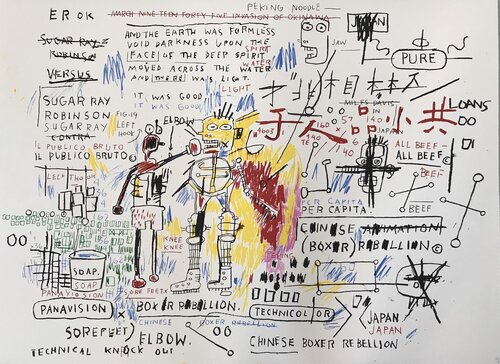 PEKING NOODLE
EROK
MARCH NINETEEN FORTY FIVE INVASION OF OKINAWA
JAPAN
SUGAR RAY
ROBINSON
VERSUS
AND THE EARTH WAS FORMLESS
VOID DARKNESS UPON THE
FACE OF THE DEEP SPIRIT
SPIRIT
MOVED ACROSS THE WATER
WATER
AND THERE WAS LIGHT.
LIGHT
IT WAS GOOD
IT WAS GOOD
JAW
PURE
SUGAR RAY
ROBINSON
SUGAR RAY
CONTRA
IL PUBLICO BRUTO
IL PUBLICO BRUTO©
FIG.19
LEFT
HOOK
ELBOW
MILES DAVIS
IN
JAPAN
品小共
LOANS
4603
160
57
140
140
ALL BEEF©
ALL BEEF
BEEF
BEEF
PER CAPITA
PER CAPITA.
LEFT
KNEE
KNEE
SORE FEET
SOAP.
SOAP
PANAVISION
PANAVISION
BOXER REBELLION
CHINESE BOXER REBELLION
CHINESE ANIMATION
(BOXER) REBELLION©
TECHNICOLOR
JAPAN
JAPAN
SOREFEET
ELBOW.
TECHNICAL KNOCK OUT
CHINESE BOXER REBELLION